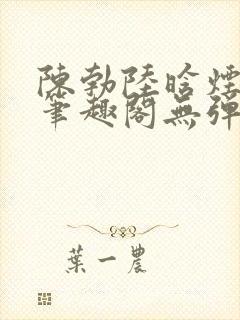 陳勃陸晗煙
筆趣閣無彈
葉一農